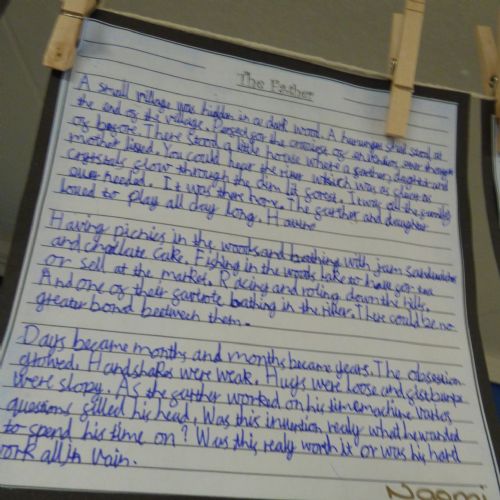 The Father
A small village was hidden in a dark wood. A stood at
the end of the village. for the of an ever thought
of before. There stood a little house where a father, daughter and
mother lived. You could hear the river which was as clear as
crystals flow through the dim lit forest. It was all the family
ever needed. It was their home. The father and daughter
loved to play all day long. Having
Having picnics in the woods and bathing with jam sandwiches
and chocolate cake. Fishing in the woods lake to have for tea
or sell at the market. Racing and roling down the hills.
And one of their favriote bathing in the river. There could be no
greater bond beetween them.
Days became months and months became years. The obsession
growed. Handshakes were weak. Hugs were loose and fistbumps
were slopy. As the father worked on his time machine varios
questions filled his head. Was this invention realy what he wanted
to spend his time on? Was this realy worth it or was his hard
work all in vain.
Naomi